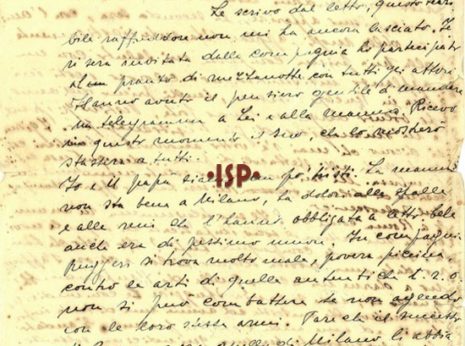 Le scrivo dal letto, questo terri
bile raffreddore non mi ha ancora lasciato. Ie
ri sera invitata dalla compagnia ho partecipato
al pranzo di mezzanotte con tutti gli attori.
Hanno avuto il pensiero gentile di mandare
un telegramma a Lei e alla mamma. Ricevo
in questo momento il Suo che lo mostrerò
stasera a tutti.
·ISP·
Io e il papà siamo un po' tristi. La mamma
non sta bene a Milano, ha dolori alle spalle
e alle reni che l'hanno obbligata a letto
anche era di pessimo umore. In compagnia
si trova molto male, povera piccina
contro le arti di quelle autentiche t. d. o.
non si può combattere se non agendo
con le loro stesse armi. Pare che il successo
quella di Milano li abbia